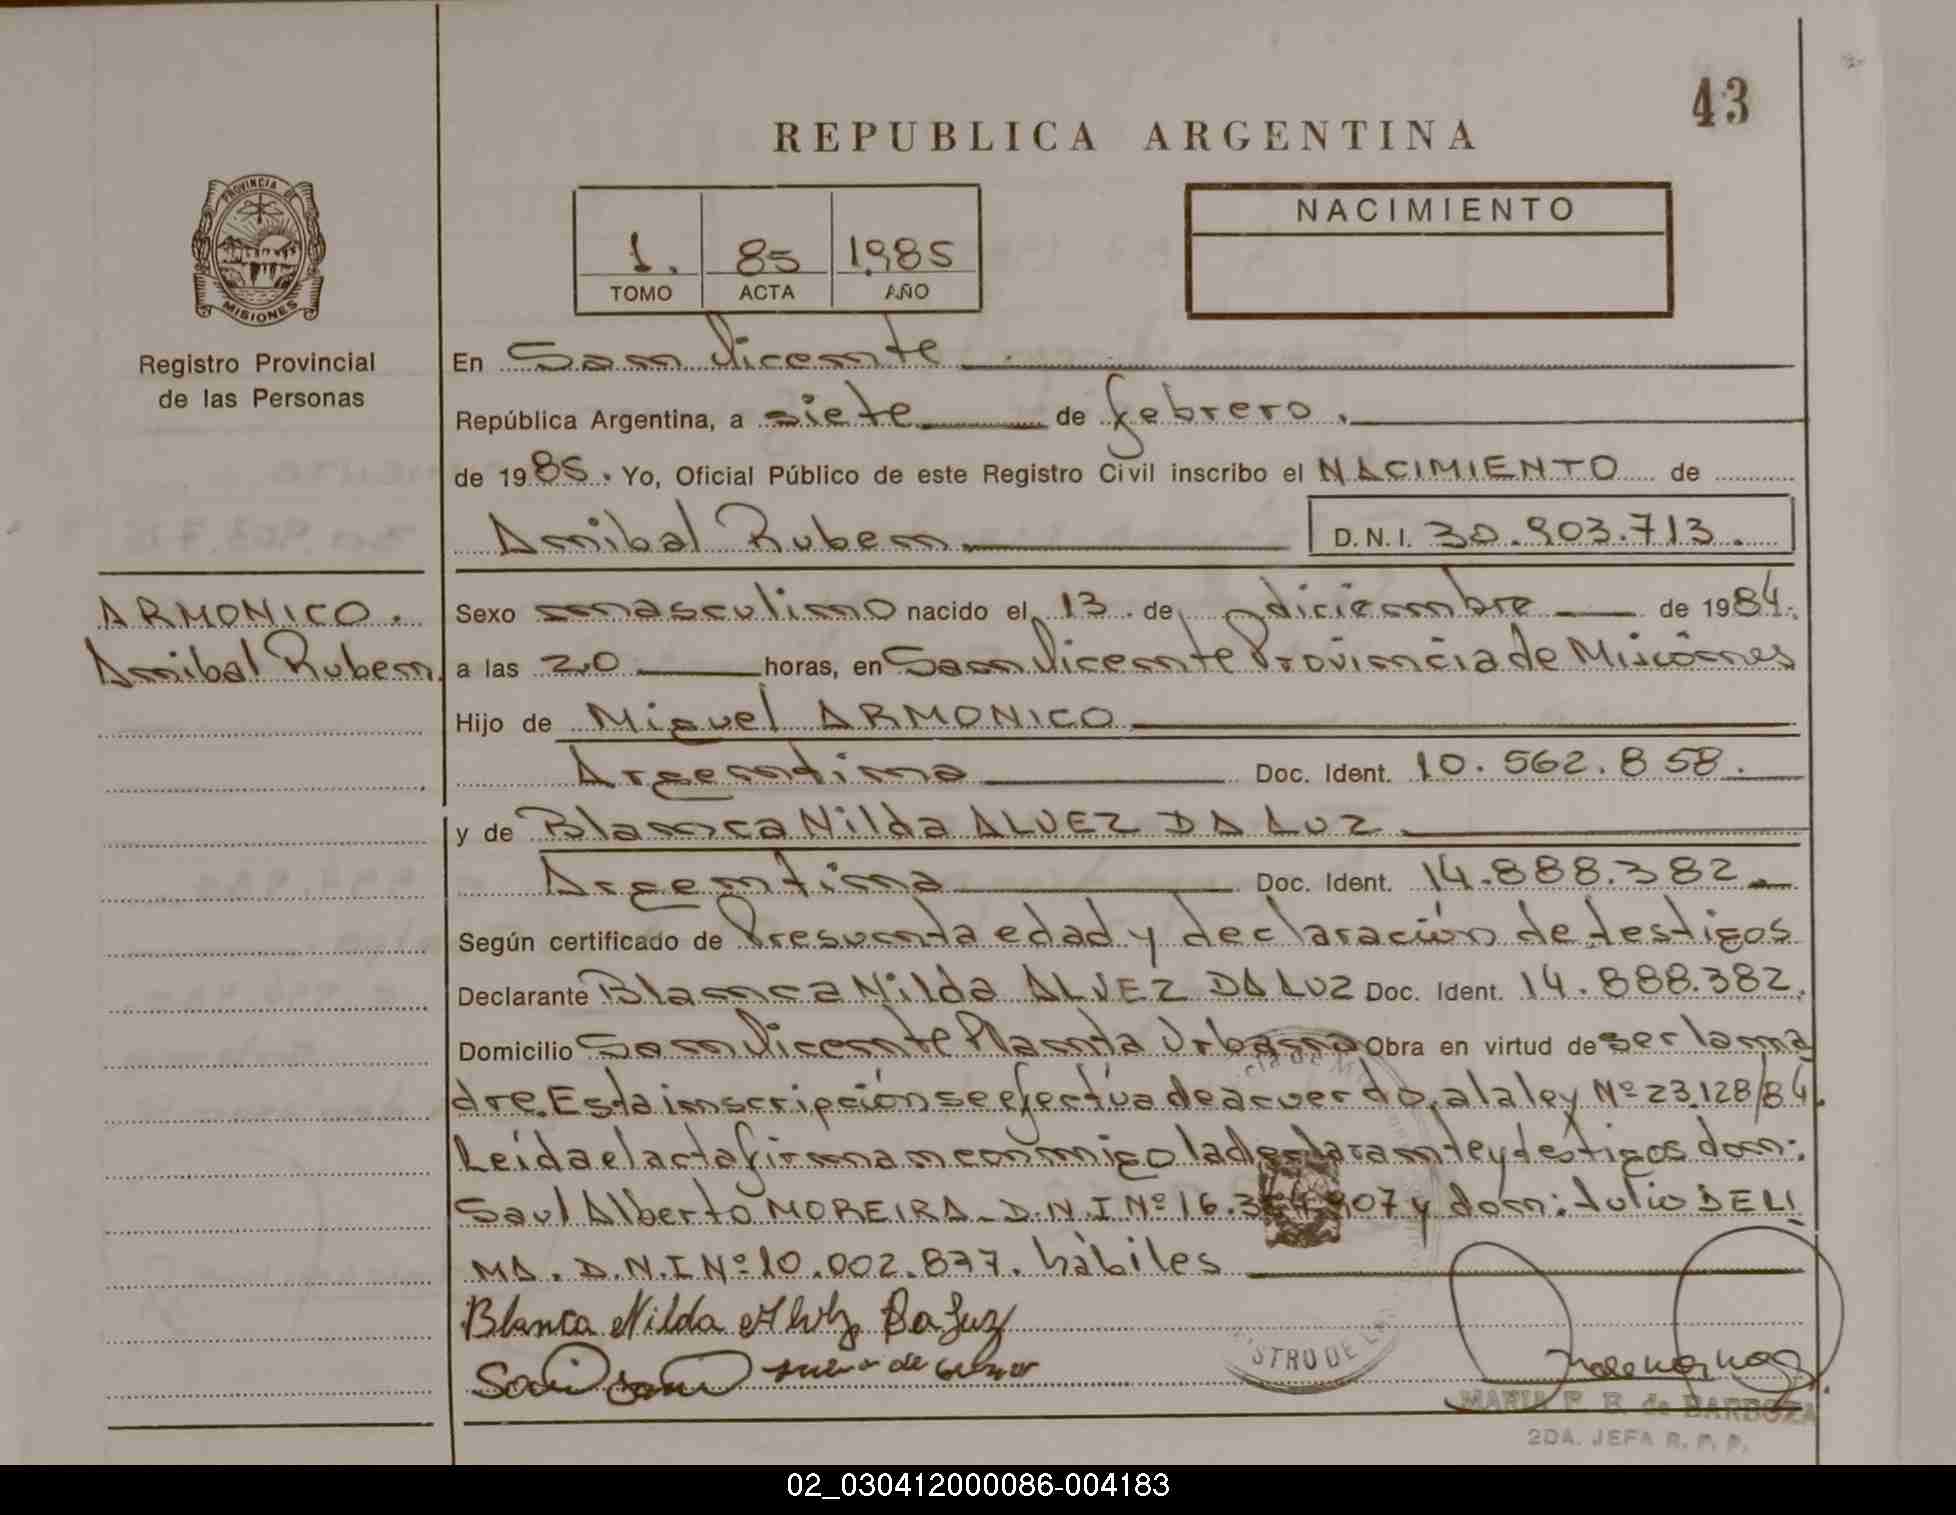 43
REPUBLICA ARGENTINA
PROVINCIA DE
MISIONES
Registro Provincial
de las Personas
1. 85 1985
TOMO ACTA AÑO
NACIMIENTO
En San Vicente
República Argentina, a siete de febrero.
de 1985. Yo, Oficial Público de este Registro Civil inscribo el NACIMIENTO de
Annibal Ruben D.N.I. 30.903.713.
ARMONICO.
Annibal Ruben
Sexo masculino nacido el 13 de diciembre de 1984.
a las 20 horas, en San Vicente Provincia de Misiones
Hijo de Miguel ARMONICO
Argentina Doc. Ident. 10.562.858.
y de Blanca Nilda ALVEZ DA LUZ
Argentina Doc. Ident. 14.888.382
Según certificado de Presunta edad y declaración de testigos
Declarante Blanca Nilda ALVEZ DA LUZ Doc. Ident. 14.888.382.
Domicilio San Vicente Planta Urbana Obra en virtud de ser la ma
dre. Esta inscripción se efectúa de acuerdo a la ley Nº 23.128/84.
Leída el acta firman conmigo la declarante y testigos don:
Saul Alberto MOREIRA - D.N.I Nº 16. y don: Julio DELI
MA. D.N.I Nº 10.002.877. hábiles
Blanca Nilda Alvez Da Luz
STRO DE LA
MARIA F. B. de BARBOZA
2DA. JEFA R. P. P.
02_030412000086-004183